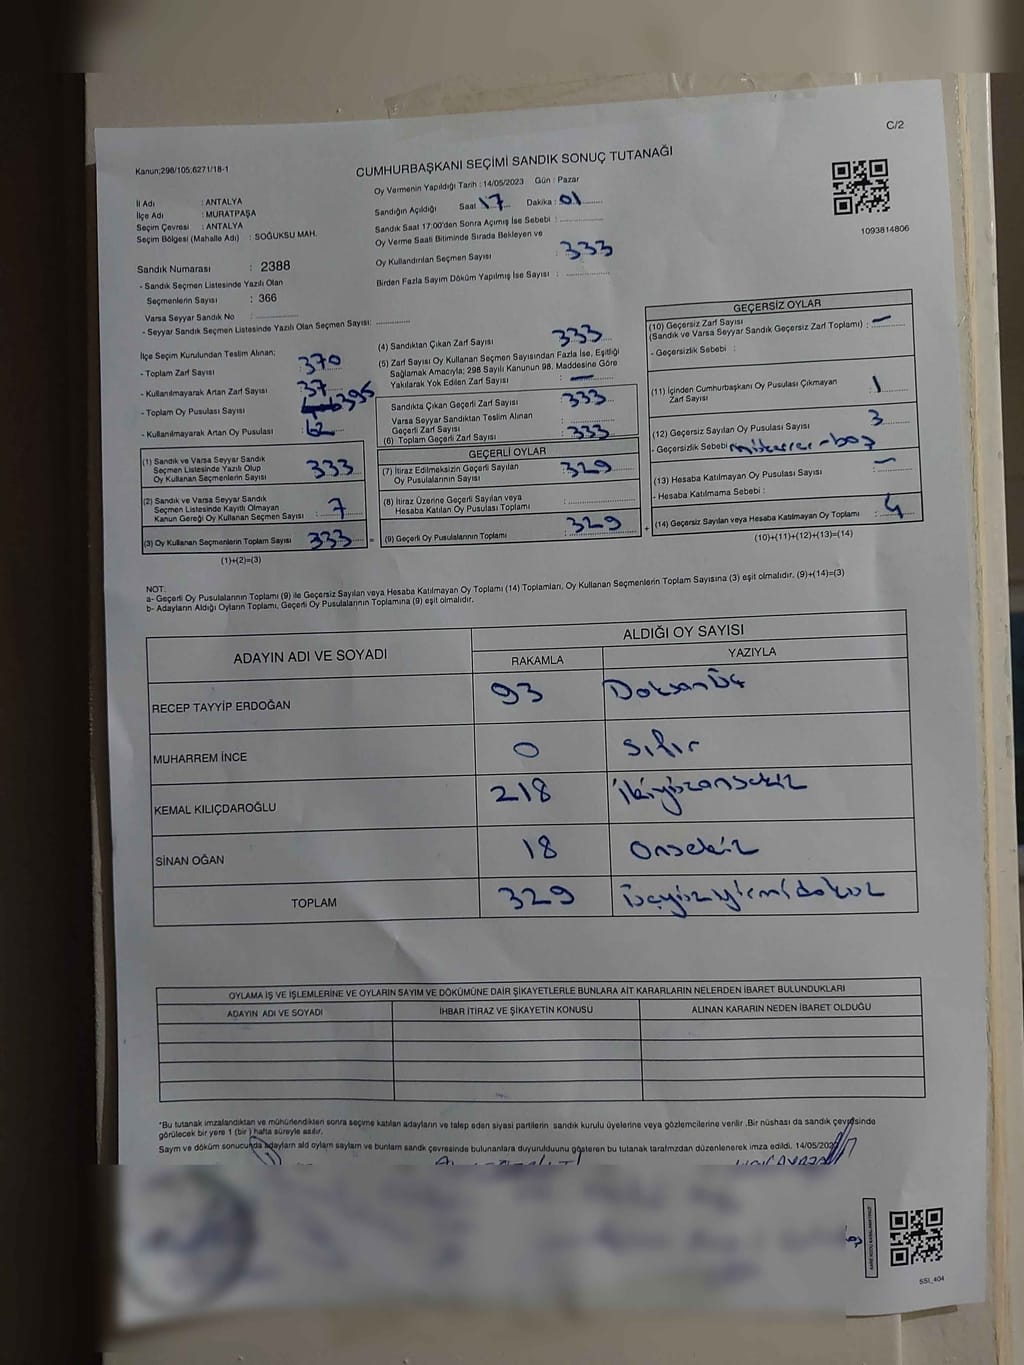 C/2
Kanun;298/105,6271/18-1
CUMHURBAŞKANI SEÇİMİ SANDIK SONUÇ TUTANAĞI
Oy Vermenin Yapıldığı Tarih : 14/05/2023 Gün : Pazar
İl Adı : ANTALYA
İlçe Adı : MURATPAŞA
Seçim Çevresi : ANTALYA
Seçim Bölgesi (Mahalle Adı) : SOĞUKSU MAH.
Sandığın Açıldığı Saat 17 Dakika : 01
Sandık Saat 17:00'den Sonra Açımış İse Sebebi :
Oy Verme Saati Bitiminde Sırada Bekleyen ve
Oy Kullandırılan Seçmen Sayısı : 333
Birden Fazla Sayım Döküm Yapılmış İse Sayısı :
1093814806
Sandık Numarası : 2388
- Sandık Seçmen Listesinde Yazılı Olan
Seçmenlerin Sayısı : 366
Varsa Seyyar Sandık No :
- Seyyar Sandık Seçmen Listesinde Yazılı Olan Seçmen Sayısı;
İlçe Seçim Kurulundan Teslim Alınan;
- Toplam Zarf Sayısı : 370
- Kullanılmayarak Artan Zarf Sayısı : 37
- Toplam Oy Pusulası Sayısı : 395
- Kullanılmayarak Artan Oy Pusulası : 62
(1) Sandık ve Varsa Seyyar Sandık
Seçmen Listesinde Yazılı Olup
Oy Kullanan Seçmenlerin Sayısı : 333
(2) Sandık ve Varsa Seyyar Sandık
Seçmen Listesinde Kayıtlı Olmayan
Kanun Gereği Oy Kullanan Seçmen Sayısı : 7
(3) Oy Kullanan Seçmenlerin Toplam Sayısı : 333
(1)+(2)=(3)
(4) Sandıktan Çıkan Zarf Sayısı : 333
(5) Zarf Sayısı Oy Kullanan Seçmen Sayısından Fazla İse, Eşitliği
Sağlamak Amacıyla; 298 Sayılı Kanunun 98. Maddesine Göre
Yakılarak Yok Edilen Zarf Sayısı : —
Sandıkta Çıkan Geçerli Zarf Sayısı : 333
Varsa Seyyar Sandıktan Teslim Alınan
Geçerli Zarf Sayısı :
(6) Toplam Geçerli Zarf Sayısı : 333
GEÇERLİ OYLAR
(7) İtiraz Edilmeksizin Geçerli Sayılan
Oy Pusulalarının Sayısı : 329
(8) İtiraz Üzerine Geçerli Sayılan veya
Hesaba Katılan Oy Pusulası Toplamı :
(9) Geçerli Oy Pusulalarının Toplamı : 329
GEÇERSİZ OYLAR
(10) Geçersiz Zarf Sayısı
(Sandık ve Varsa Seyyar Sandık Geçersiz Zarf Toplamı) : —
- Geçersizlik Sebebi :
(11) İçinden Cumhurbaşkanı Oy Pusulası Çıkmayan
Zarf Sayısı : 1
(12) Geçersiz Sayılan Oy Pusulası Sayısı : 3
- Geçersizlik Sebebi mükerrer-boş
(13) Hesaba Katılmayan Oy Pusulası Sayısı : —
- Hesaba Katılmama Sebebi :
(14) Geçersiz Sayılan veya Hesaba Katılmayan Oy Toplamı : 4
(10)+(11)+(12)+(13)=(14)
NOT:
a- Geçerli Oy Pusulalarının Toplamı (9) ile Geçersiz Sayılan veya Hesaba Katılmayan Oy Toplamı (14) Toplamları, Oy Kullanan Seçmenlerin Toplam Sayısına (3) eşit olmalıdır. (9)+(14)=(3)
b- Adayların Aldığı Oyların Toplamı, Geçerli Oy Pusulalarının Toplamına (9) eşit olmalıdır.
ADAYIN ADI VE SOYADI ALDIĞI OY SAYISI
RAKAMLA YAZIYLA
RECEP TAYYİP ERDOĞAN 93 DoksanÜç
MUHARREM İNCE 0 Sıfır
KEMAL KILIÇDAROĞLU 218 İkiyüzonsekiz
SİNAN OĞAN 18 Onsekiz
TOPLAM 329 Üçyüzyirmidokuz
OYLAMA İŞ VE İŞLEMLERİNE VE OYLARIN SAYIM VE DÖKÜMÜNE DAİR ŞİKAYETLERLE BUNLARA AİT KARARLARIN NELERDEN İBARET BULUNDUKLARI
ADAYIN ADI VE SOYADI İHBAR İTİRAZ VE ŞİKAYETİN KONUSU ALINAN KARARIN NEDEN İBARET OLDUĞU
*Bu tutanak imzalandıktan ve mühürlendikten sonra seçime katılan adayların ve talep eden siyasi partilerin sandık kurulu üyelerine veya gözlemcilerine verilir .Bir nüshası da sandık çevresinde
görülecek bir yere 1 (bir ) hafta süreyle asılır.
Sayım ve döküm sonucunda adayların ald oyların sayların ve bunların sandık çevresinde bulunanlara duyurulduunu gösteren bu tutanak tarafımızdan düzenlenerek imza edildi. 14/05/2023
SSI_404